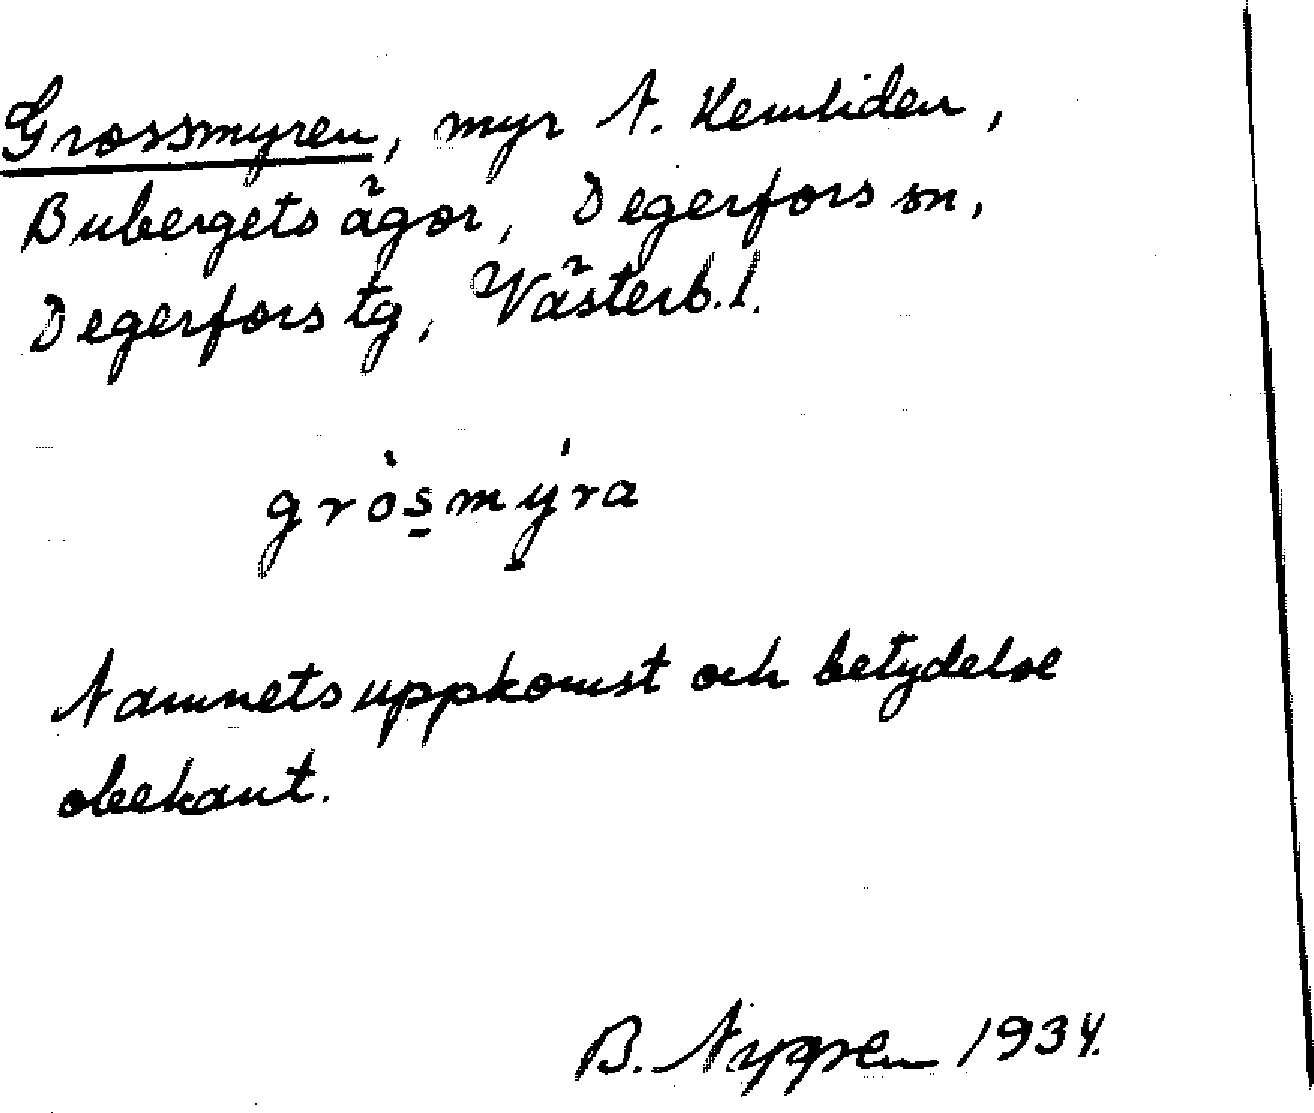 Grossmyren, myr N. Hemliden,
Bubergets ägor, Degerfors sn,
Degerfors tg, Västerb. l.
gròsmýra
Namnets uppkomst och betydelse
obekant.
B. Nygren 1934.